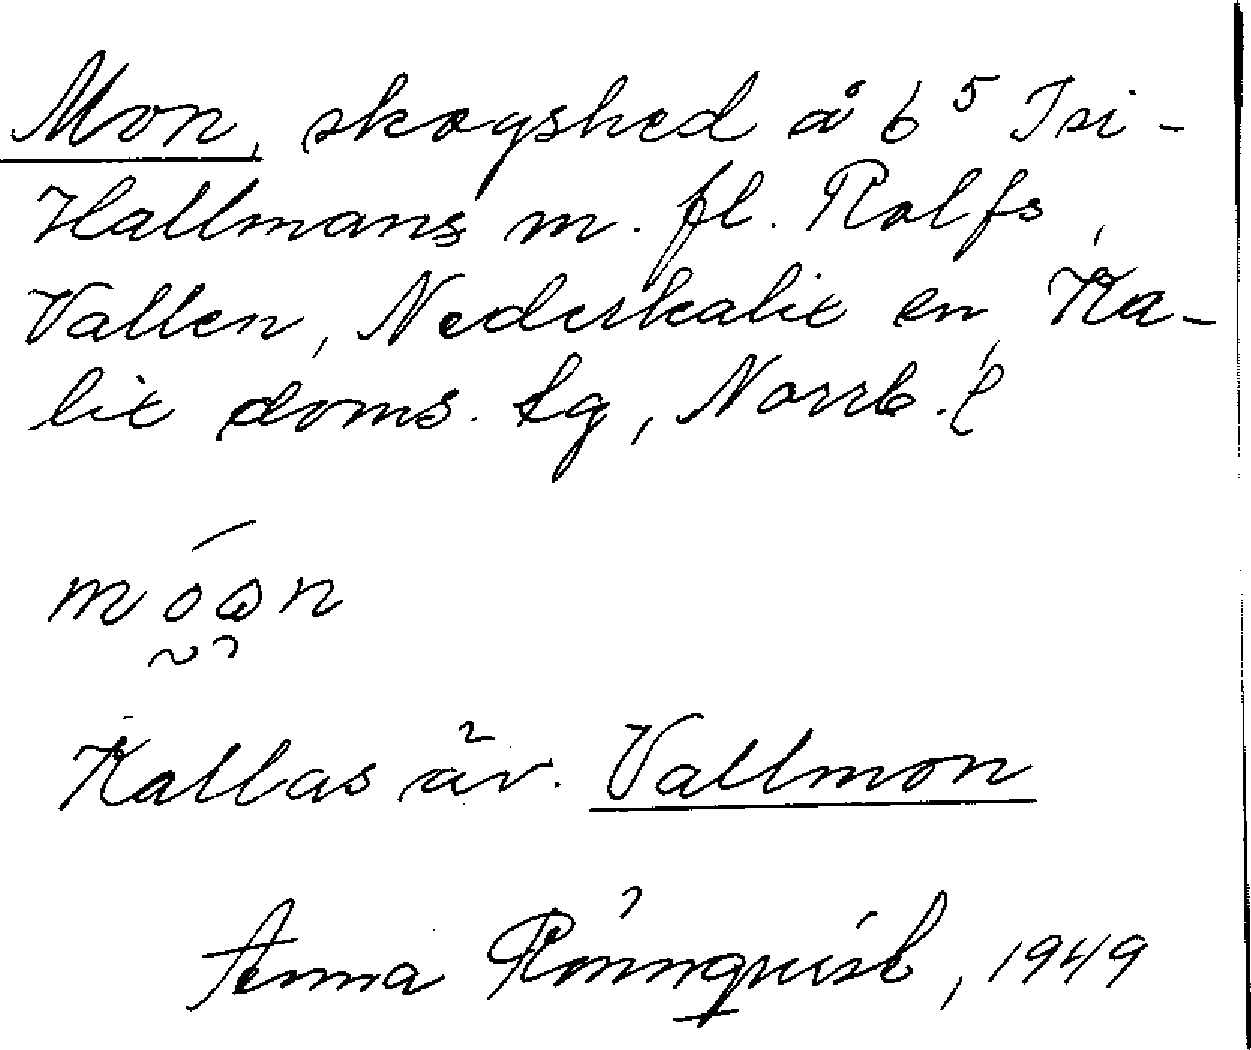 Mon, skogshed å 6⁵ Isi-
Hallmans m. fl. Rolfs,
Vallen, Nederkalix sn, Ka-
lix doms. lg, Norrb. l
móon
Kallas äv. Vallmon
Anna Rönnqvist, 1949